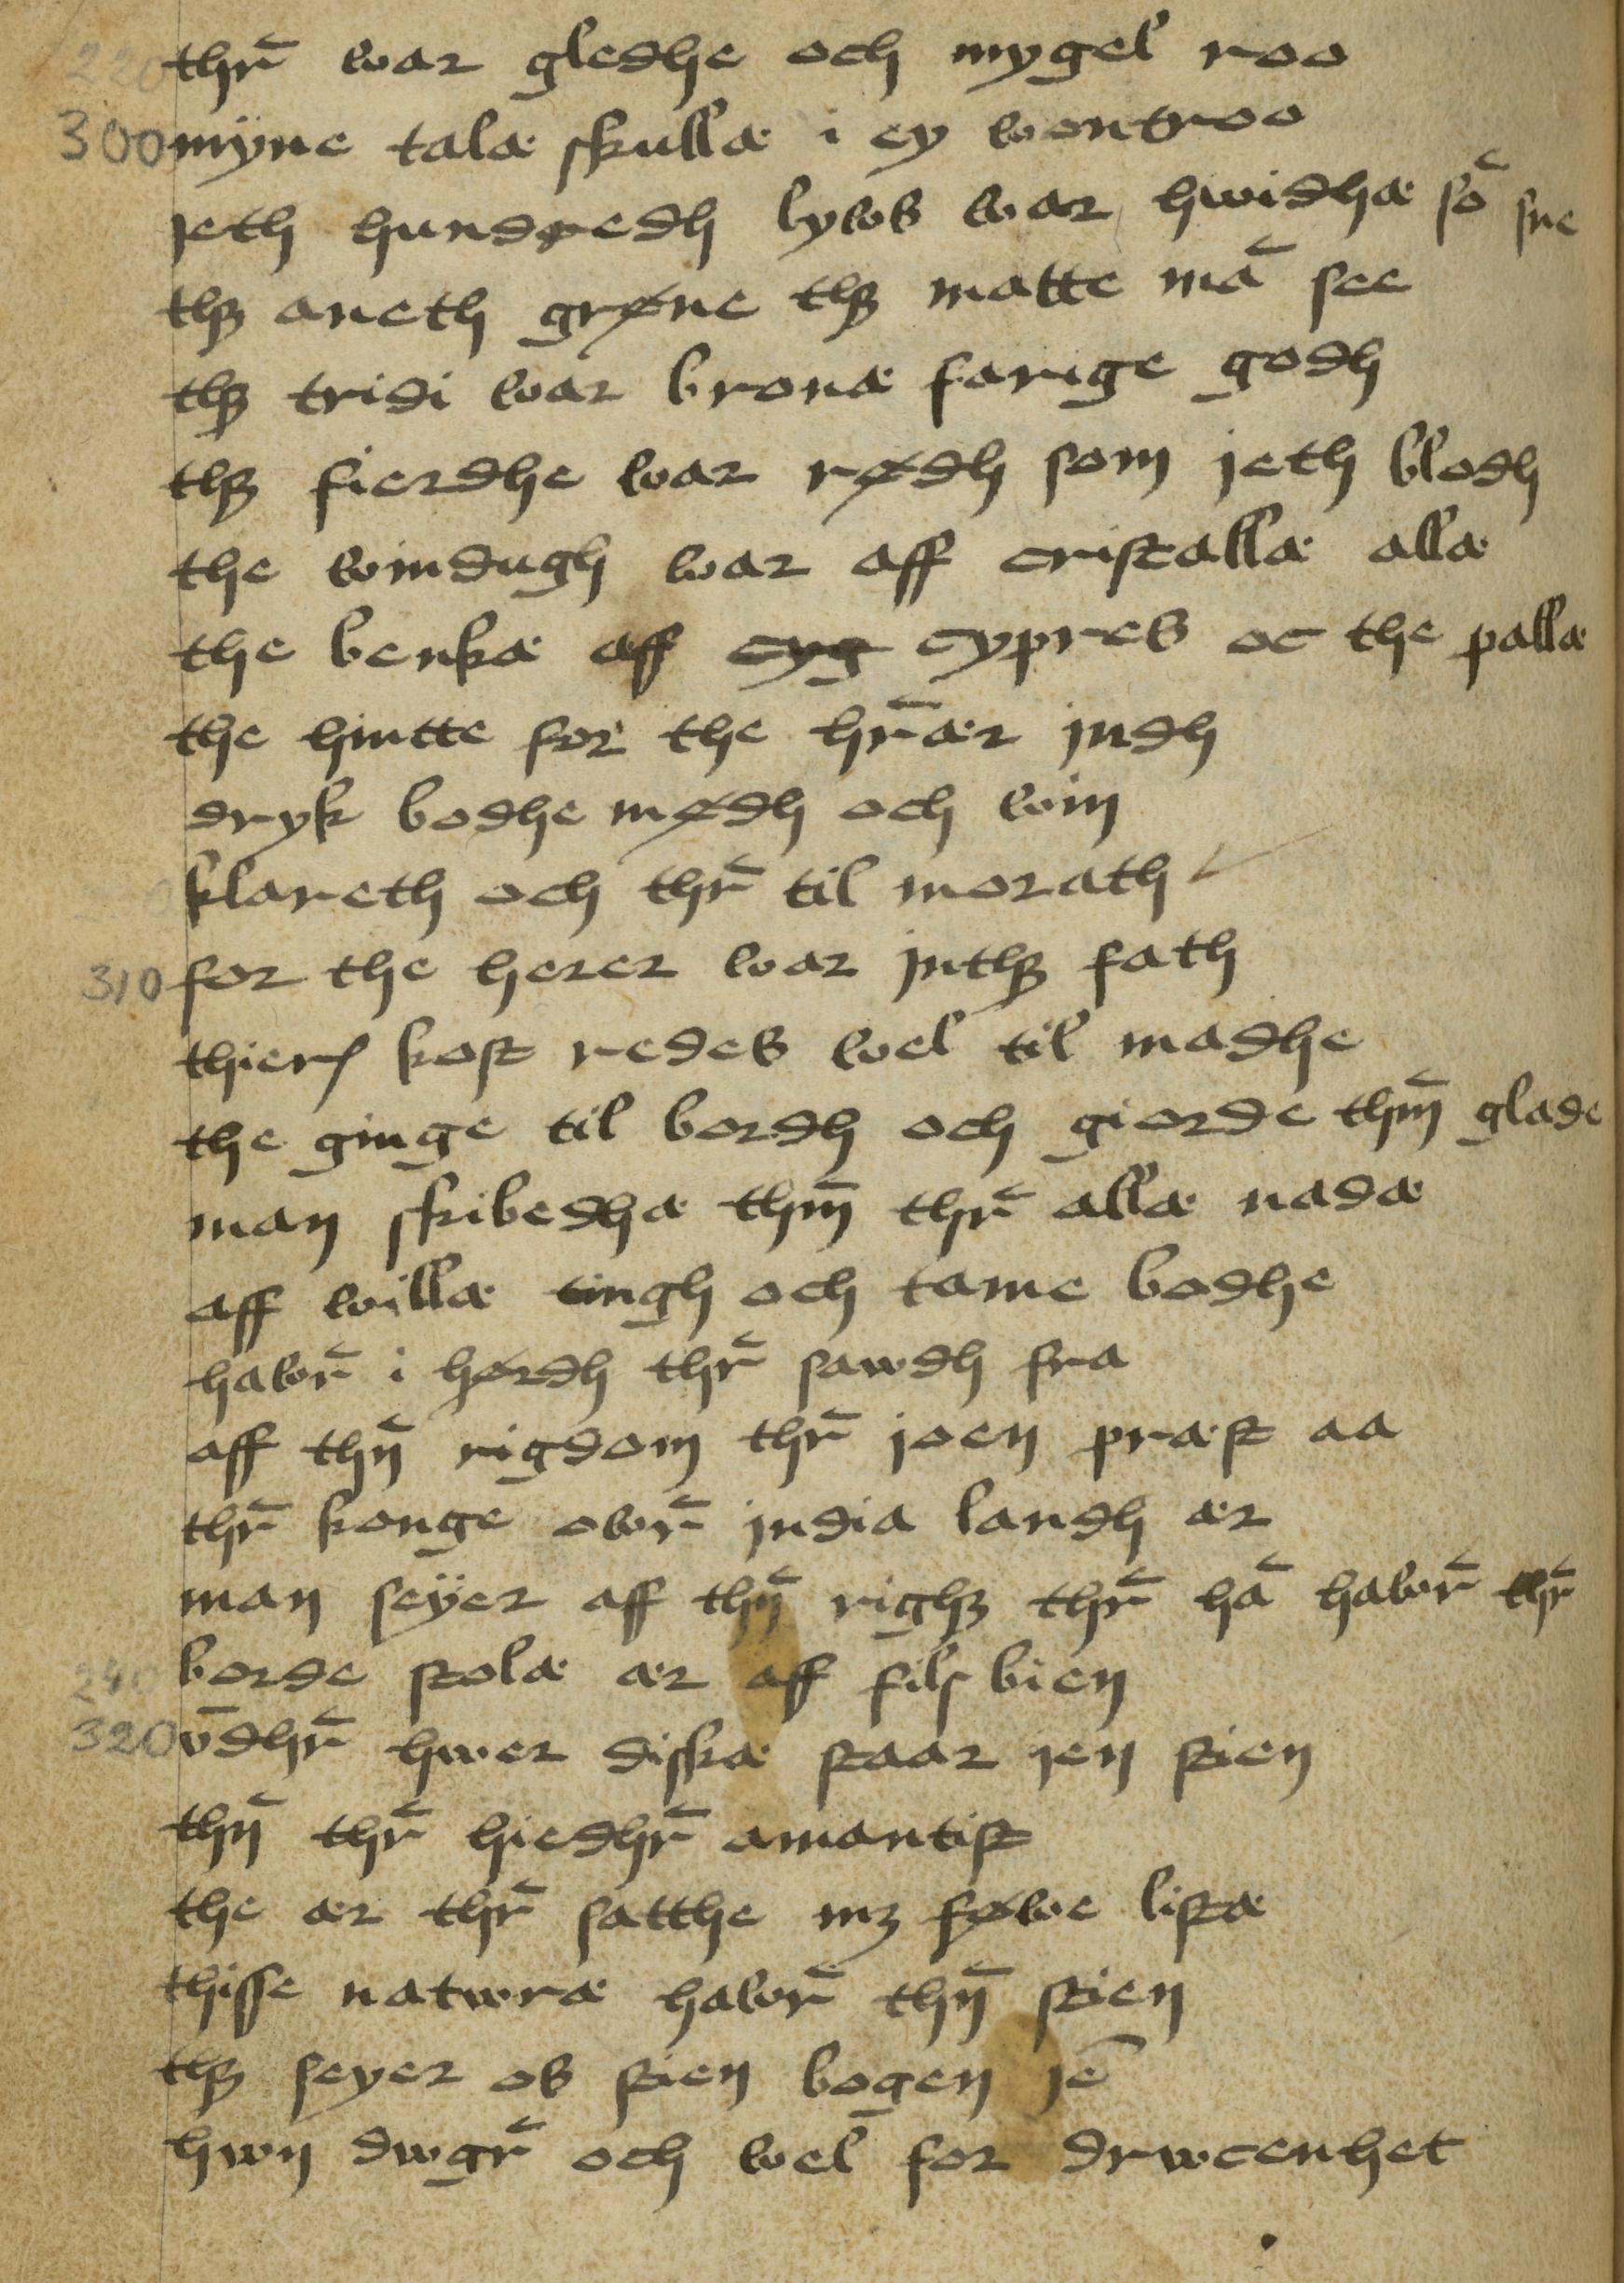 thr̄ war gledhe och mygel roo
300 mÿne talæ skullæ i ey wontroo
jeth hundredh lyws war hwidhæ so̅ sne
thꝫ aneth grøne thꝫ matte ma̅ see
thꝫ tridi war bronæ farige godh
thꝫ fierdhe war rødh som jeth blodh
the windugh war aff cristallæ allæ
the benkæ aff cyg cypres oc the pallæ
the hintte for the hr̄ær jndh
dryk bodhe mødh och win
klareth och thr̄ til morath
310 for the herer war jnthꝫ fath
thiers kost redes wel til madhe
the ginge til bordh och giorde thm̄ glade
man skibedhæ thm̄ thr̄ allæ nadæ
aff willæ tingh och tame bodhe
hawr̄ i hørdh thr̄ sawdh fra
aff thn̄ rigdom thr̄ joen præst aa
thr̄ konge owr̄ jndia landh ær
man seÿer aff thn̄ righꝫ thr̄ ha̅ hawr̄ thr̄
240 borde stolæ ær aff fils bien
320 v̄dhr̄ hwer diskæ staar jen stien
thn̄ thr̄ hiedhr̄ amantist
the ær thr̄ satthe mꝫ føwe listæ
thisse natwræ hawr̄ thn̄ stien
thꝫ seyer os stien bogen je̅
hwn dwgr̄ och wel for drwcenhet